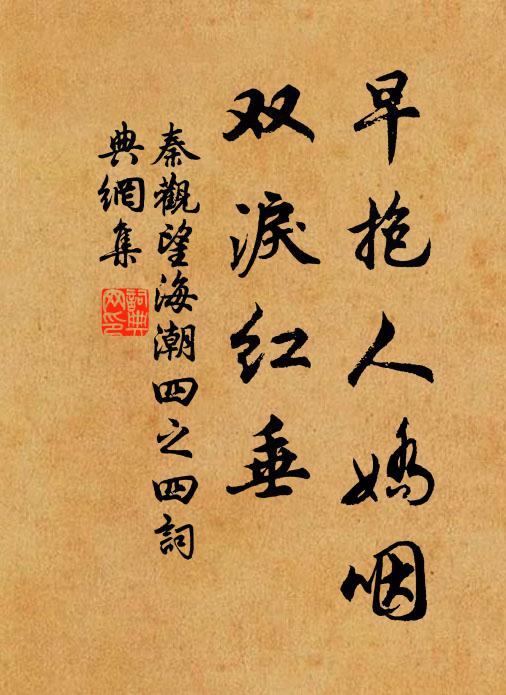 早抱人娇咽
双淚红垂
秦觀望海潮四之四詞
典網集
詞典
网印